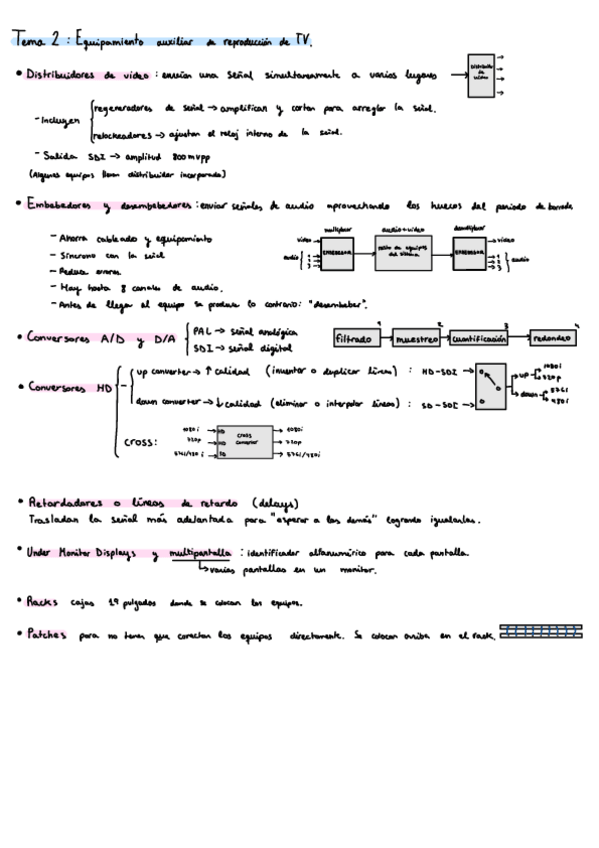 Tema 2: Equipamiento auxiliar de reproducción de TV.
• Distribuidores de video: envían una señal simultaneamente a varios lugares
Distribuidor de video
- Incluyen
regeneradores de señal → amplifican y cortan para arreglar la señal.
relockeadores → ajustan el reloj interno de la señal.
- Salida SDI → amplitud 800mvpp
(Algunos equipos llevan distribuidor incorporado)
• Embebedores y desembebedores: enviar señales de audio aprovechando los huecos del periodo de borrado
multiplexor audio+video demultiplexor
- Ahorra cableado y equipamiento
video
audio
1
2
3
resto de equipos del sistema
video
1
2
3
audio
- Síncrono con la señal
- Reduce errores.
- Hay hasta 8 canales de audio.
- Antes de llegar al equipo se produce lo contrario: "desembeber".
• Conversores A/D y D/A
PAL → señal analógica
SDI → señal digital
1 2 3 4
filtrado → muestreo → cuantificación → redondeo
• Conversores HD
- up converter → ↑ calidad (inventar o duplicar líneas) : HD-SDI →
down converter → ↓ calidad (eliminar o interpolar líneas) : SD-SDI →
up
1080i
720p
down
576i
480i
cross:
1080i → HD
720p → HD
576i/480i → SD
cross converter
→ 1080i
→ 720p
→ 576i/480i
• Retardadores o líneas de retardo (delays)
Trasladan la señal más adelantada para "esperar a las demás" logrando igualarlas.
• Under Monitor Displays y multipantalla : identificador alfanumérico para cada pantalla.
↳ varias pantallas en un monitor.
• Racks cajas 19 pulgadas donde se colocan los equipos.
• Patches para no tener que conectar los equipos directamente. Se colocan arriba en el rack.